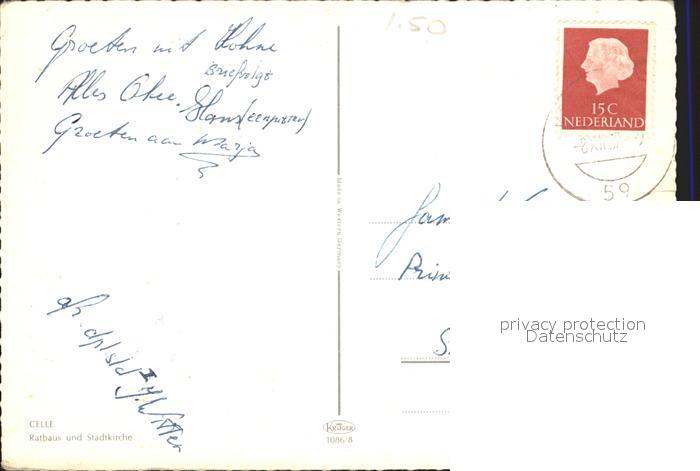 1.50
Groeten uit Hohne
Brief volgt
Alles Okee. Hans
Groeten aan Marja
15 C
NEDERLAND
59
Made in Western Germany
Fam
Prin
S
privacy protection
Datenschutz
CELLE
Rathaus und Stadtkirche
KRÜGER
1086/8